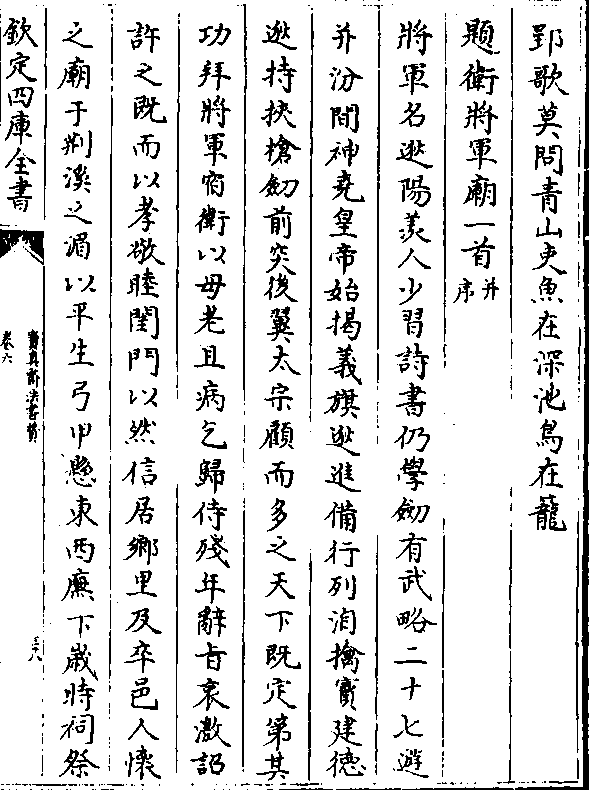 郢歌莫問青山吏魚在深池鳥在籠
題衛將軍廟一首并序
將軍名逖陽羨人少習詩書仍學劒有武略二十七遊
并汾間神堯皇帝始揭義旗逖進備行列洎擒竇建德
逖持挾槍劒前突後翼太宗顧而多之天下既定第其
功拜將軍宿衛以母老且病乞歸侍殘年辭旨哀激詔
許之既而以孝敬睦閨門以然信居鄉里及卒邑人懷
之廟于荆溪之湄以平生弓甲懸東西廡下嵗時祠祭
欽定四庫全書
寳真齋法書贊
卷六
三十八